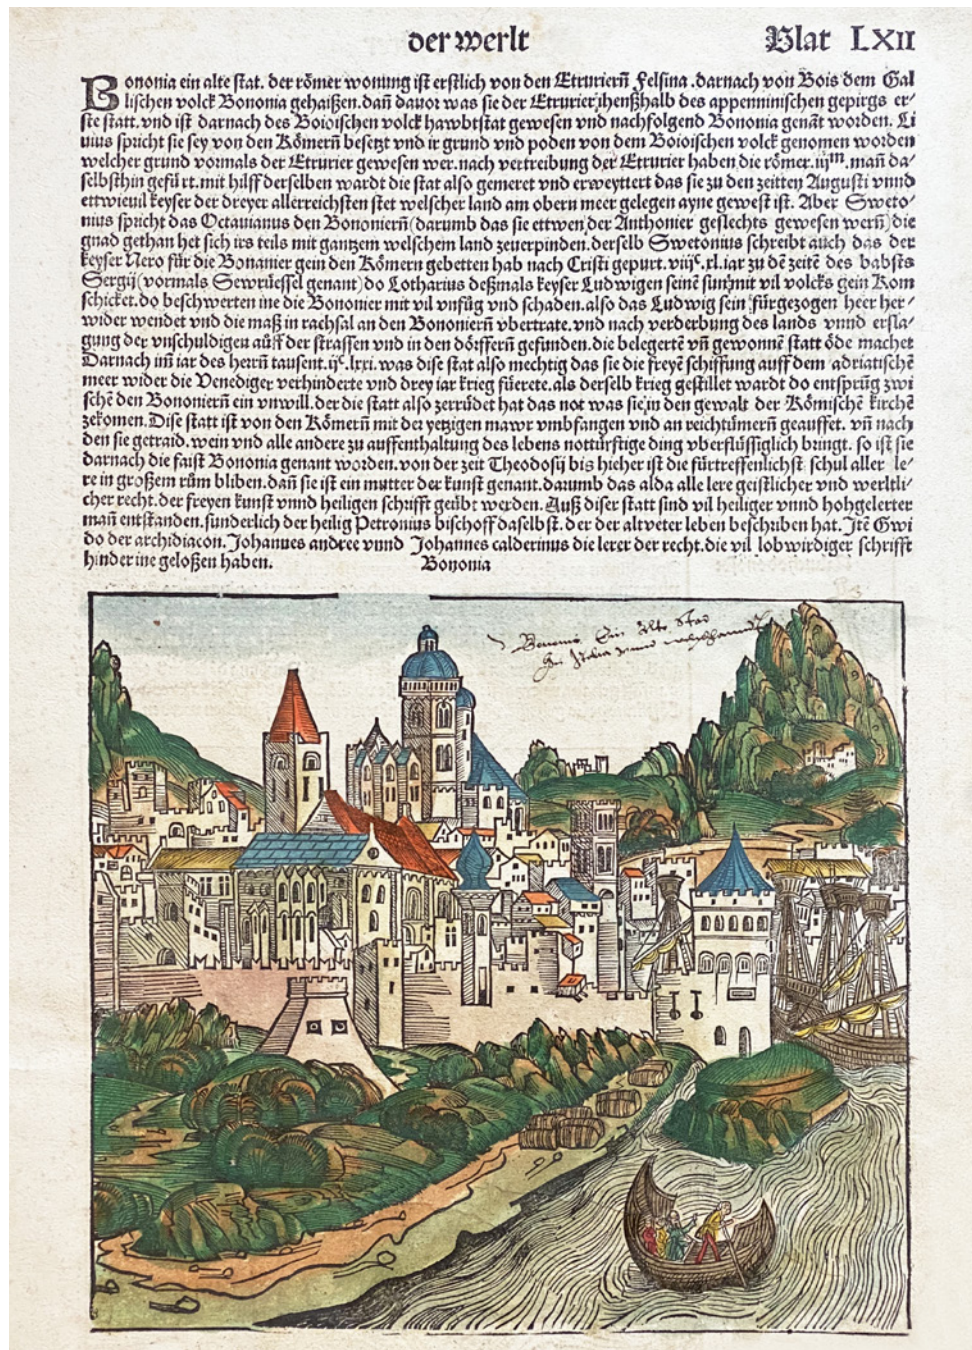 der werlt Blat LXII
Bononia ein alte stat. der römer wonung ist erstlich von den Etruriern̄ Felsina. darnach von Bois dem Gal
lischen volck Bononia gehaißen. dan̄ dauor was sie der Etrurier ihenßhalb des appenninischen gepirgs er⸗
ste statt. vnd ist darnach des Boioischen volck hawbtstat gewesen vnd nachfolgend Bononia genāt worden. Li
uius spricht sie sey von den Römern̄ besetzt vnd ir grund vnd poden von dem Boioischen volck genomen worden
welcher grund vormals der Etrurier gewesen wer. nach vertreibung der Etrurier haben die römer. iijᵐ. man̄ da⸗
selbsthin gefürt. mit hilff derselben wardt die stat also gemeret vnd erweyttert das sie zu den zeitten Augusti vnnd
ettwieuil keyser der dreyer allerreichsten stet welscher land am obern meer gelegen ayne gewest ist. Aber Sweto⸗
nius spricht das Octauianus den Bononiern̄ (darumb das sie ettwen der Anthonier geslechts gewesen wern̄) die
gnad gethan het sich irs teils mit gantzem welschem land zeuerpinden. derselb Swetonius schreibt auch das der
keyser Nero für die Bonanier gein den Römern gebetten hab nach Cristi gepurt. viijᶜ. xl. iar zu dē zeitē des babsts
Sergij (vormals Sewrüessel genant) do Lotharius deßmals keyser Ludwigen seinē sun mit vil volcks gein Rom
schicket. do beschwerten ine die Bononier mit vil vnfüg vnd schaden. also das Ludwig sein fürgezogen heer her⸗
wider wendet vnd die maß in rachsal an den Bononiern̄ vbertrate. vnd nach verderbung des lands vnnd ersla⸗
gung der vnschuldigen auff der strassen vnd in den dörffern̄ gefunden. die belegertē vn̄ gewonnē statt öde machet
Darnach im iar des herrn̄ tausent. ijᶜ. lxxi. was dise stat also mechtig das sie die freyē schiffung auff dem adriatischē
meer wider die Venediger verhinderte vnd drey iar krieg fürete. als derselb krieg gestillet wardt do entsprūg zwi
schē den Bononiern̄ ein vnwill. der die statt also zerrüdet hat das not was sie in den gewalt der Römischē kirchē
zekomen. Dise statt ist von den Römern̄ mit der yetzigen mawr vmbfangen vnd an reichtümern̄ geauffet. vn̄ nach
den sie getraid. wein vnd alle andere zu auffenthaltung des lebens notturftige ding vberflüssiglich bringt. so ist sie
darnach die faist Bononia genant worden. von der zeit Theodosij bis hieher ist die fürtreffenlichst schul aller le⸗
re in großem rūm bliben. dan̄ sie ist ein mutter der kunst genant. darumb das alda alle lere geistlicher vnd werltli⸗
cher recht. der freyen kunst vnnd heiligen schrifft geübt werden. Auß diser statt sind vil heiliger vnnd hohgelerter
man̄ entstanden. sunderlich der heilig Petronius bischoff daselbst. der der altveter leben beschriben hat. Itē Gwi
do der archidiacon. Johannes andree vnnd Johannes calderinus die lerer der recht. die vil lobwirdiger schrifft
hinder ine geloßen haben. Bononia
Bononia Ein Alte Stad